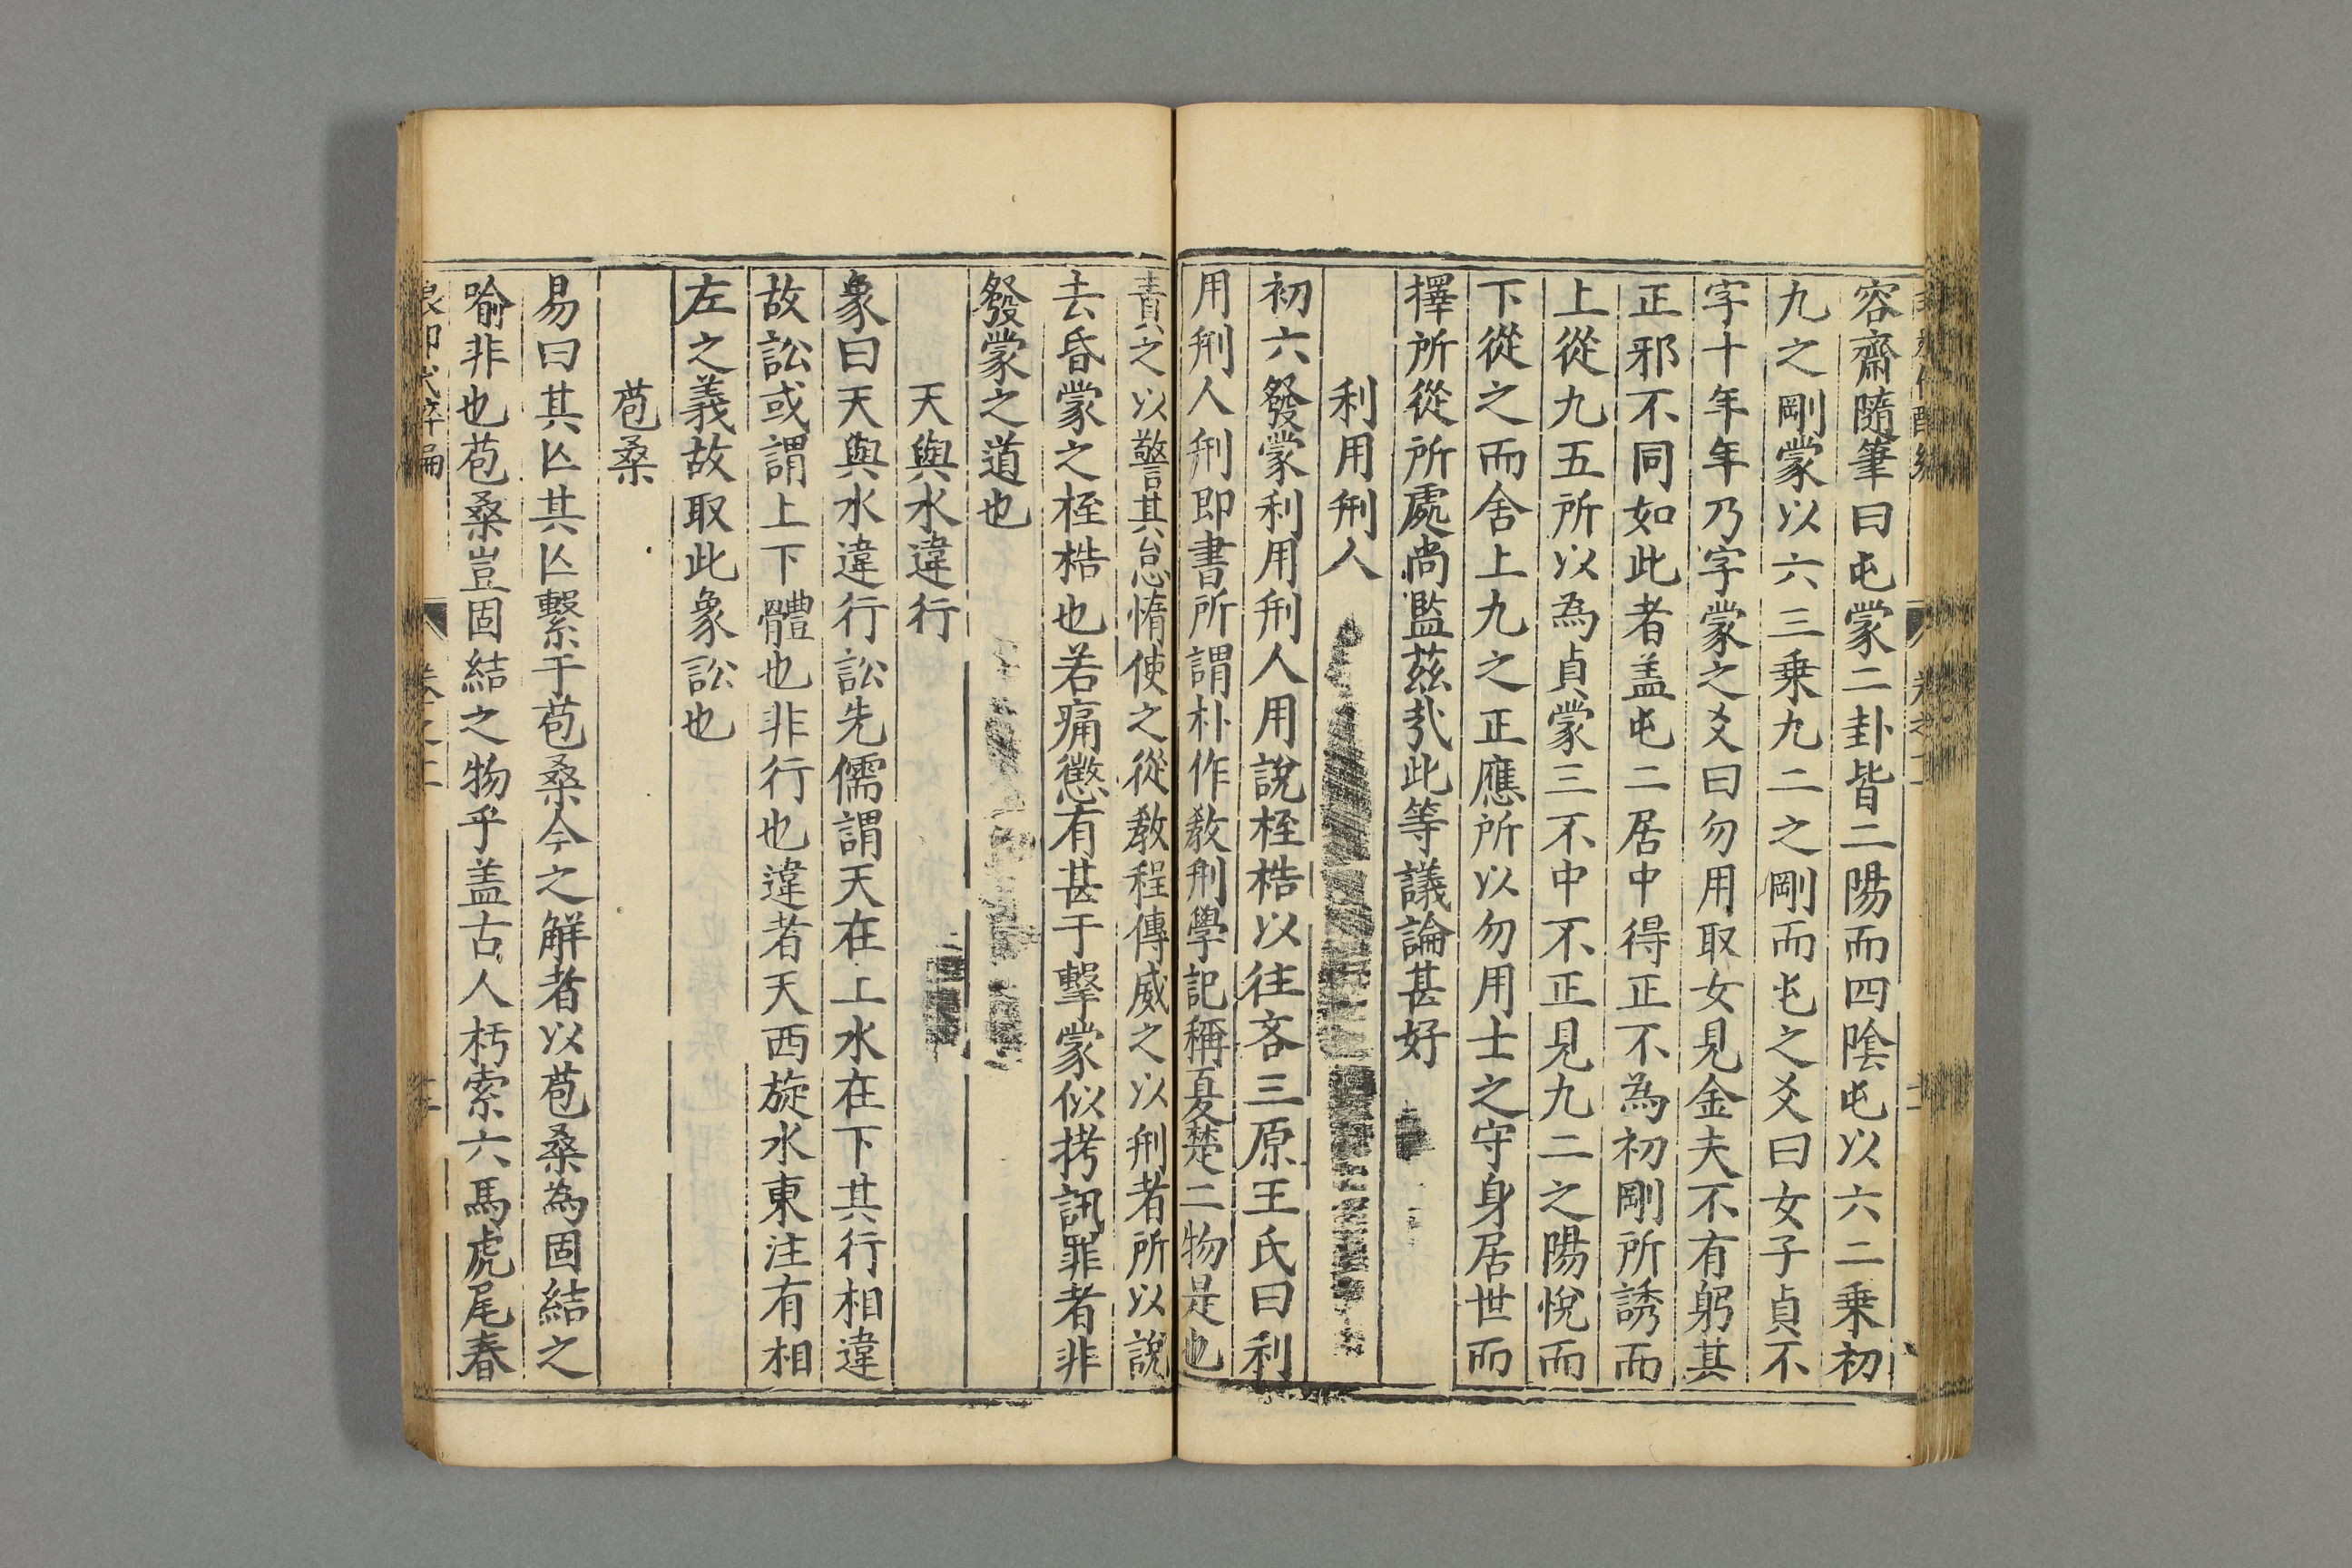 容齋隨筆曰屯蒙二卦皆二陽而四陰屯以六二乗初
九之剛蒙以六三乗九二之剛而屯之爻曰女子貞不
字十年年乃字蒙之爻曰勿用取女見金夫不有躬其
正邪不同如此者盖屯二居中得正不為初剛所誘而
上從九五所以為貞蒙三不中不正見九二之陽悅而
下從之而舍上九之正應所以勿用士之守身居世而
擇所從所處尚監茲㢤此等議論甚好
利用刑人
初六發蒙利用刑人用說桎梏以往吝三原王氏曰利
用刑人刑即書所謂朴作教刑學記稱夏楚二物是也
責之以警其怠惰使之從教程傳威之以刑者所以說
去昏蒙之桎梏也若痛懲有甚于擊蒙似拷訊罪者非
發蒙之道也
天與水違行
象曰天與水違行訟先儒謂天在上水在下其行相違
故訟或謂上下體也非行也違者天西旋水東注有相
左之義故取此象訟也
苞桑
易曰其亾其亾繫于苞桑今之解者以苞桑為固結之
喻非也苞桑豈固結之物乎盖古人朽索六馬虎尾春
卷之二